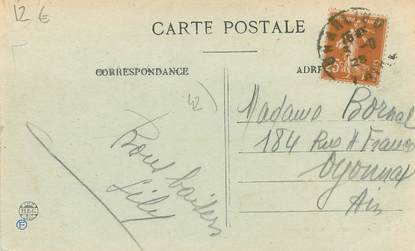 12 €
CARTE POSTALE
CORRESPONDANCE
ADRE
12
Bons baisers
Lily
Madame Bornal
184 Rue A France
Oyonnax
Ain